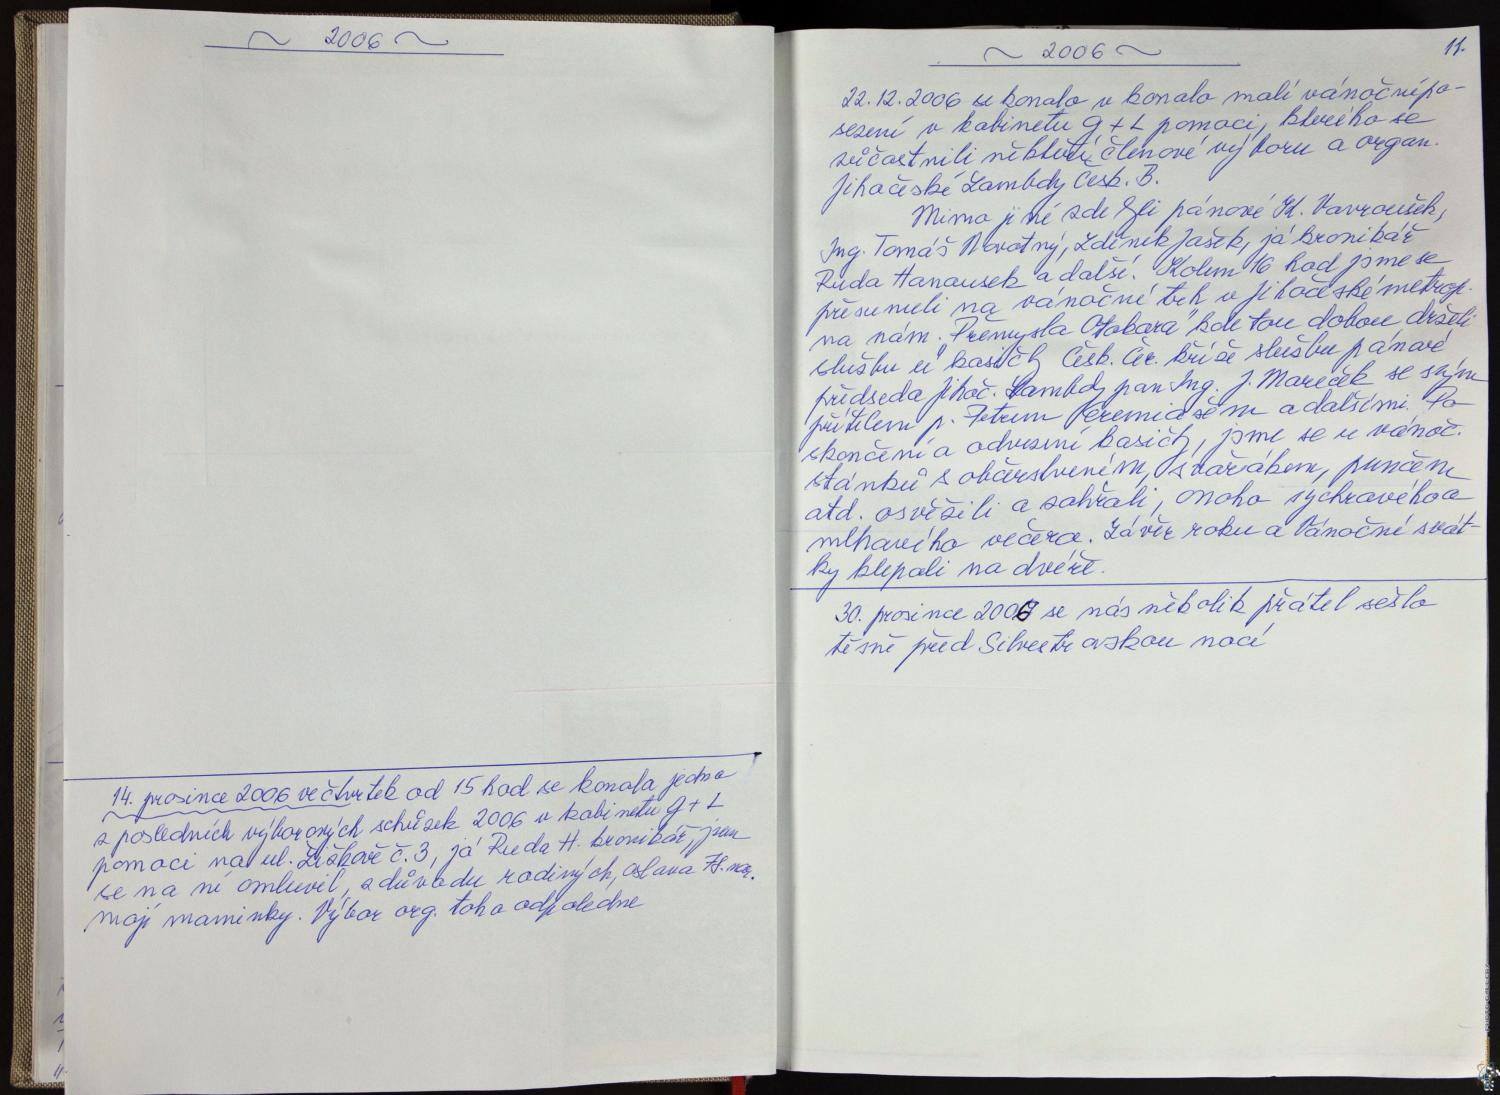 ~ 2006 ~
14. prosince 2006 ve čtvrtek od 15 hod se konala jedna
z posledních výborových schůzek 2006 v kabinetu G + L
pomoci na ul. Žižkově č. 3, já Ruda H. kronikář, jsem
se na ní omluvil, z důvodu rodiných, oslava 78. nar.
mojí maminky. Výbor org. toho odpoledne
~ 2006 ~
11.
22.12.2006 se konalo v konalo malí vánoční po-
sezení v kabinetu G + L pomoci, kterého se
zůčastnili někteří členové výboru a organ.
Jihačeské Lambdy Česk. B.
Mimo jiné zde byli pánové Vavroušek,
Ing. Tomáš Novotný, Zdeněk Jašek, já kronikář
Ruda Hanousek a další. Kolem 16 hod jsme se
přesunuli na vánoční trh v Jihočeské metrop.
na nám. Přemysla Otakara kde tou dobou drželi
službu u kasičky Česk. Čer. kříže službu pánové
předseda Jihoč. Lambdy pan Ing. J. Mareček se svým
přítelem p. Petrem Jeremiášem a dalšími. Po
skončení a odvezení kasičky, jsme se u vánoč.
stánků s občerstveném, svařákem, punčem
atd. osvěžili a zahřáli, onoho sychravého a
mlhavého večera. Závěr roku a Vánoční svát-
ky klepali na dvéře.
30. prosince 2006 se nás několik přátel sešlo
těsně před Silvestrovskou nocí